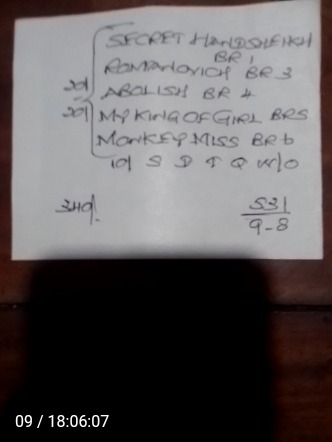 SECRET HANDSHEIKH
BR 1
ROMANOVICH BR 3
20/ ABOLISH BR 4
20/ MY KING OF GIRL BR5
MONKEY MISS BR 6
10/ S D T Q W/O
340/.
531
9-8
09 / 18:06:07